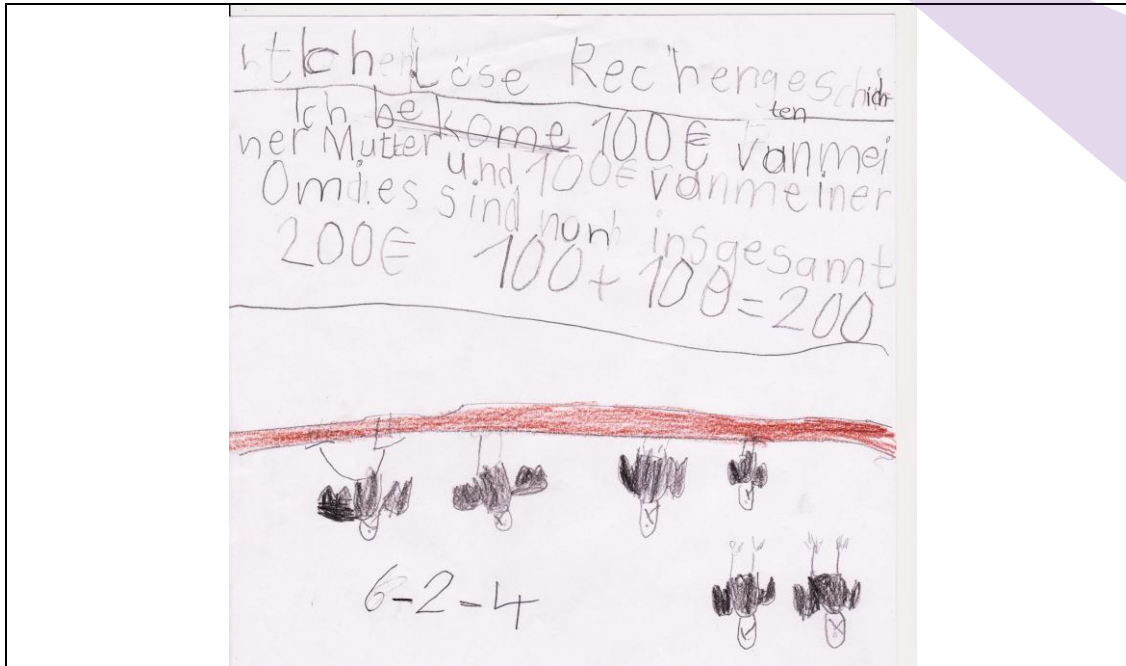 ntlchenLöse Rechengeschich
ten
Ich bekome 100€ vanmei
ner Mutter und 100€ vanmeiner
Omdies sind nun insgesamt
200€ 100+100=200
6-2-4